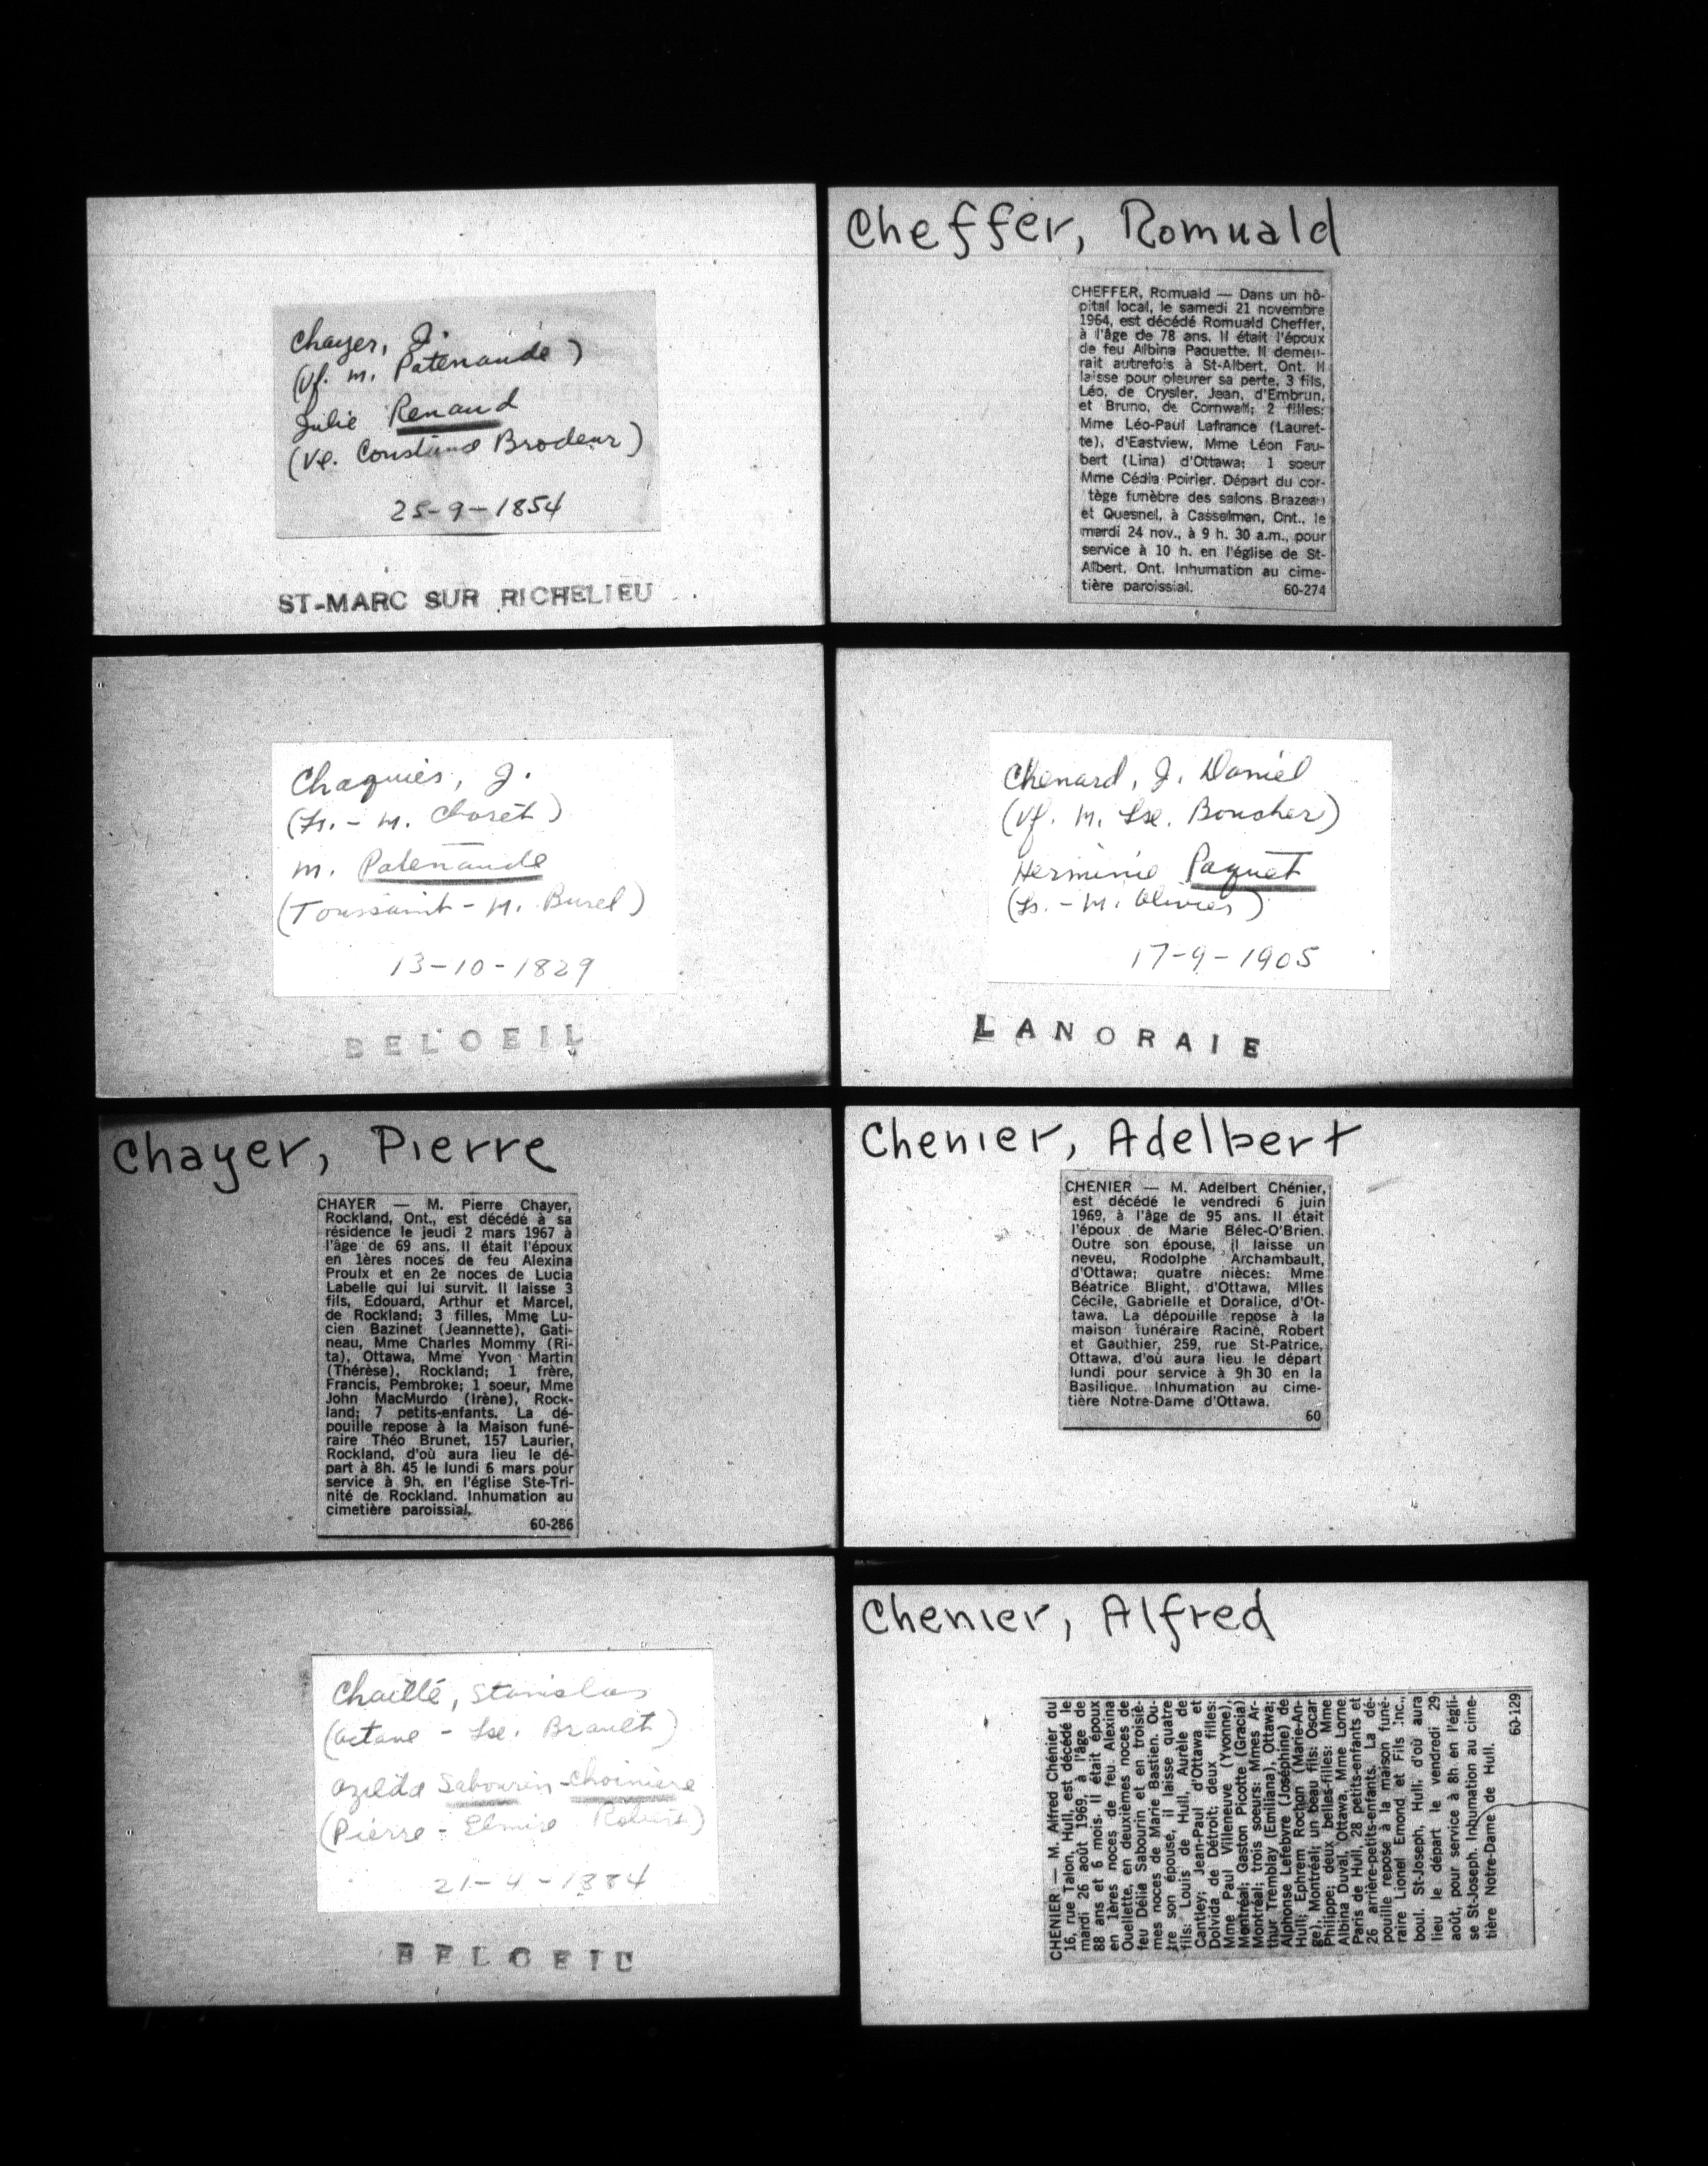 Chayer, J.
(Vf. m. Patenaude)
Julie Renaud
(Ve. Constand Brodeur)
25-9-1854
ST-MARC SUR RICHELIEU
Chaquies, J.
(Ls. - M. Charet)
m. Patenaude
(Toussaint - M. Burel)
13-10-1829
BELOEIL
Chayer, Pierre
CHAYER — M. Pierre Chayer,
Rockland, Ont., est décédé à sa
résidence le jeudi 2 mars 1967 à
l'âge de 69 ans. Il était l'époux
en 1ères noces de feu Alexina
Proulx et en 2e noces de Lucia
Labelle qui lui survit. Il laisse 3
fils, Edouard, Arthur et Marcel,
de Rockland; 3 filles, Mme Lu-
cien Bazinet (Jeannette), Gati-
neau, Mme Charles Mommy (Ri-
ta), Ottawa, Mme Yvon Martin
(Thérèse), Rockland; 1 frère,
Francis, Pembroke; 1 soeur, Mme
John MacMurdo (Irène), Rock-
land; 7 petits-enfants. La dé-
pouille repose à la Maison funé-
raire Théo Brunet, 157 Laurier,
Rockland, d'où aura lieu le dé-
part à 8h. 45 le lundi 6 mars pour
service à 9h. en l'église Ste-Tri-
nité de Rockland. Inhumation au
cimetière paroissial.
60-286
Chaillé, Stanislas
(Octave - Lse. Brault)
Ozilda Sabourin-Choinière
(Pierre - Elmire Robert)
21-4-1884
BELOEIL
Cheffer, Romuald
CHEFFER, Romuald — Dans un hô-
pital local, le samedi 21 novembre
1964, est décédé Romuald Cheffer,
à l'âge de 78 ans. Il était l'époux
de feu Albina Paquette. Il demeu-
rait autrefois à St-Albert, Ont. Il
laisse pour pleurer sa perte, 3 fils,
Léo, de Crysler, Jean, d'Embrun,
et Bruno, de Cornwall; 2 filles:
Mme Léo-Paul Lafrance (Lauret-
te), d'Eastview, Mme Léon Fau-
bert (Lina) d'Ottawa; 1 soeur
Mme Cédia Poirier. Départ du cor-
tège funèbre des salons Brazeau
et Quesnel, à Casselman, Ont., le
mardi 24 nov., à 9 h. 30 a.m., pour
service à 10 h. en l'église de St-
Albert, Ont. Inhumation au cime-
tière paroissial. 60-274
Chenard, J. Daniel
(Vf. M. Lse. Boucher)
Herminie Paquet
(Ls. - M. Olivier)
17-9-1905
LANORAIE
Chenier, Adelbert
CHENIER — M. Adelbert Chénier,
est décédé le vendredi 6 juin
1969, à l'âge de 95 ans. Il était
l'époux de Marie Bélec-O'Brien.
Outre son épouse, il laisse un
neveu, Rodolphe Archambault,
d'Ottawa; quatre nièces: Mme
Béatrice Blight, d'Ottawa, Mlles
Cécile, Gabrielle et Doralice, d'Ot-
tawa. La dépouille repose à la
maison funéraire Racine, Robert
et Gauthier, 259, rue St-Patrice,
Ottawa, d'où aura lieu le départ
lundi pour service à 9h 30 en la
Basilique. Inhumation au cime-
tière Notre-Dame d'Ottawa.
60
Chenier, Alfred
CHENIER — M. Alfred Chénier du
16, rue Talon, Hull, est décédé le
mardi 26 août 1969, à l'âge de
88 ans et 6 mois. Il était époux
en 1ères noces de feu Alexina
Ouellette, en deuxièmes noces de
feu Délia Sabourin et en troisiè-
mes noces de Marie Bastien. Ou-
tre son épouse, il laisse quatre
fils: Louis de Hull, Aurèle de
Cantley; Jean-Paul d'Ottawa et
Dolvida de Détroit; deux filles:
Mme Paul Villeneuve (Yvonne),
Montréal; Gaston Picotte (Gracia)
Montréal; trois soeurs: Mmes Ar-
thur Tremblay (Emiliana), Ottawa;
Alphonse Lefebvre (Joséphine) de
Hull; Ephrem Rochon (Marie-An-
ge), Montréal; un beau fils: Oscar
Philippe; deux belles-filles: Mme
Albina Duval, Ottawa, Mme Lorne
Paris de Hull, 28 petits-enfants et
26 arrière-petits-enfants. La dé-
pouille repose à la maison funé-
raire Lionel Emond et Fils Inc.,
boul. St-Joseph, Hull, d'où aura
lieu le départ le vendredi 29
août, pour service à 8h. en l'égli-
se St-Joseph. Inhumation au cime-
tière Notre-Dame de Hull.
60-129